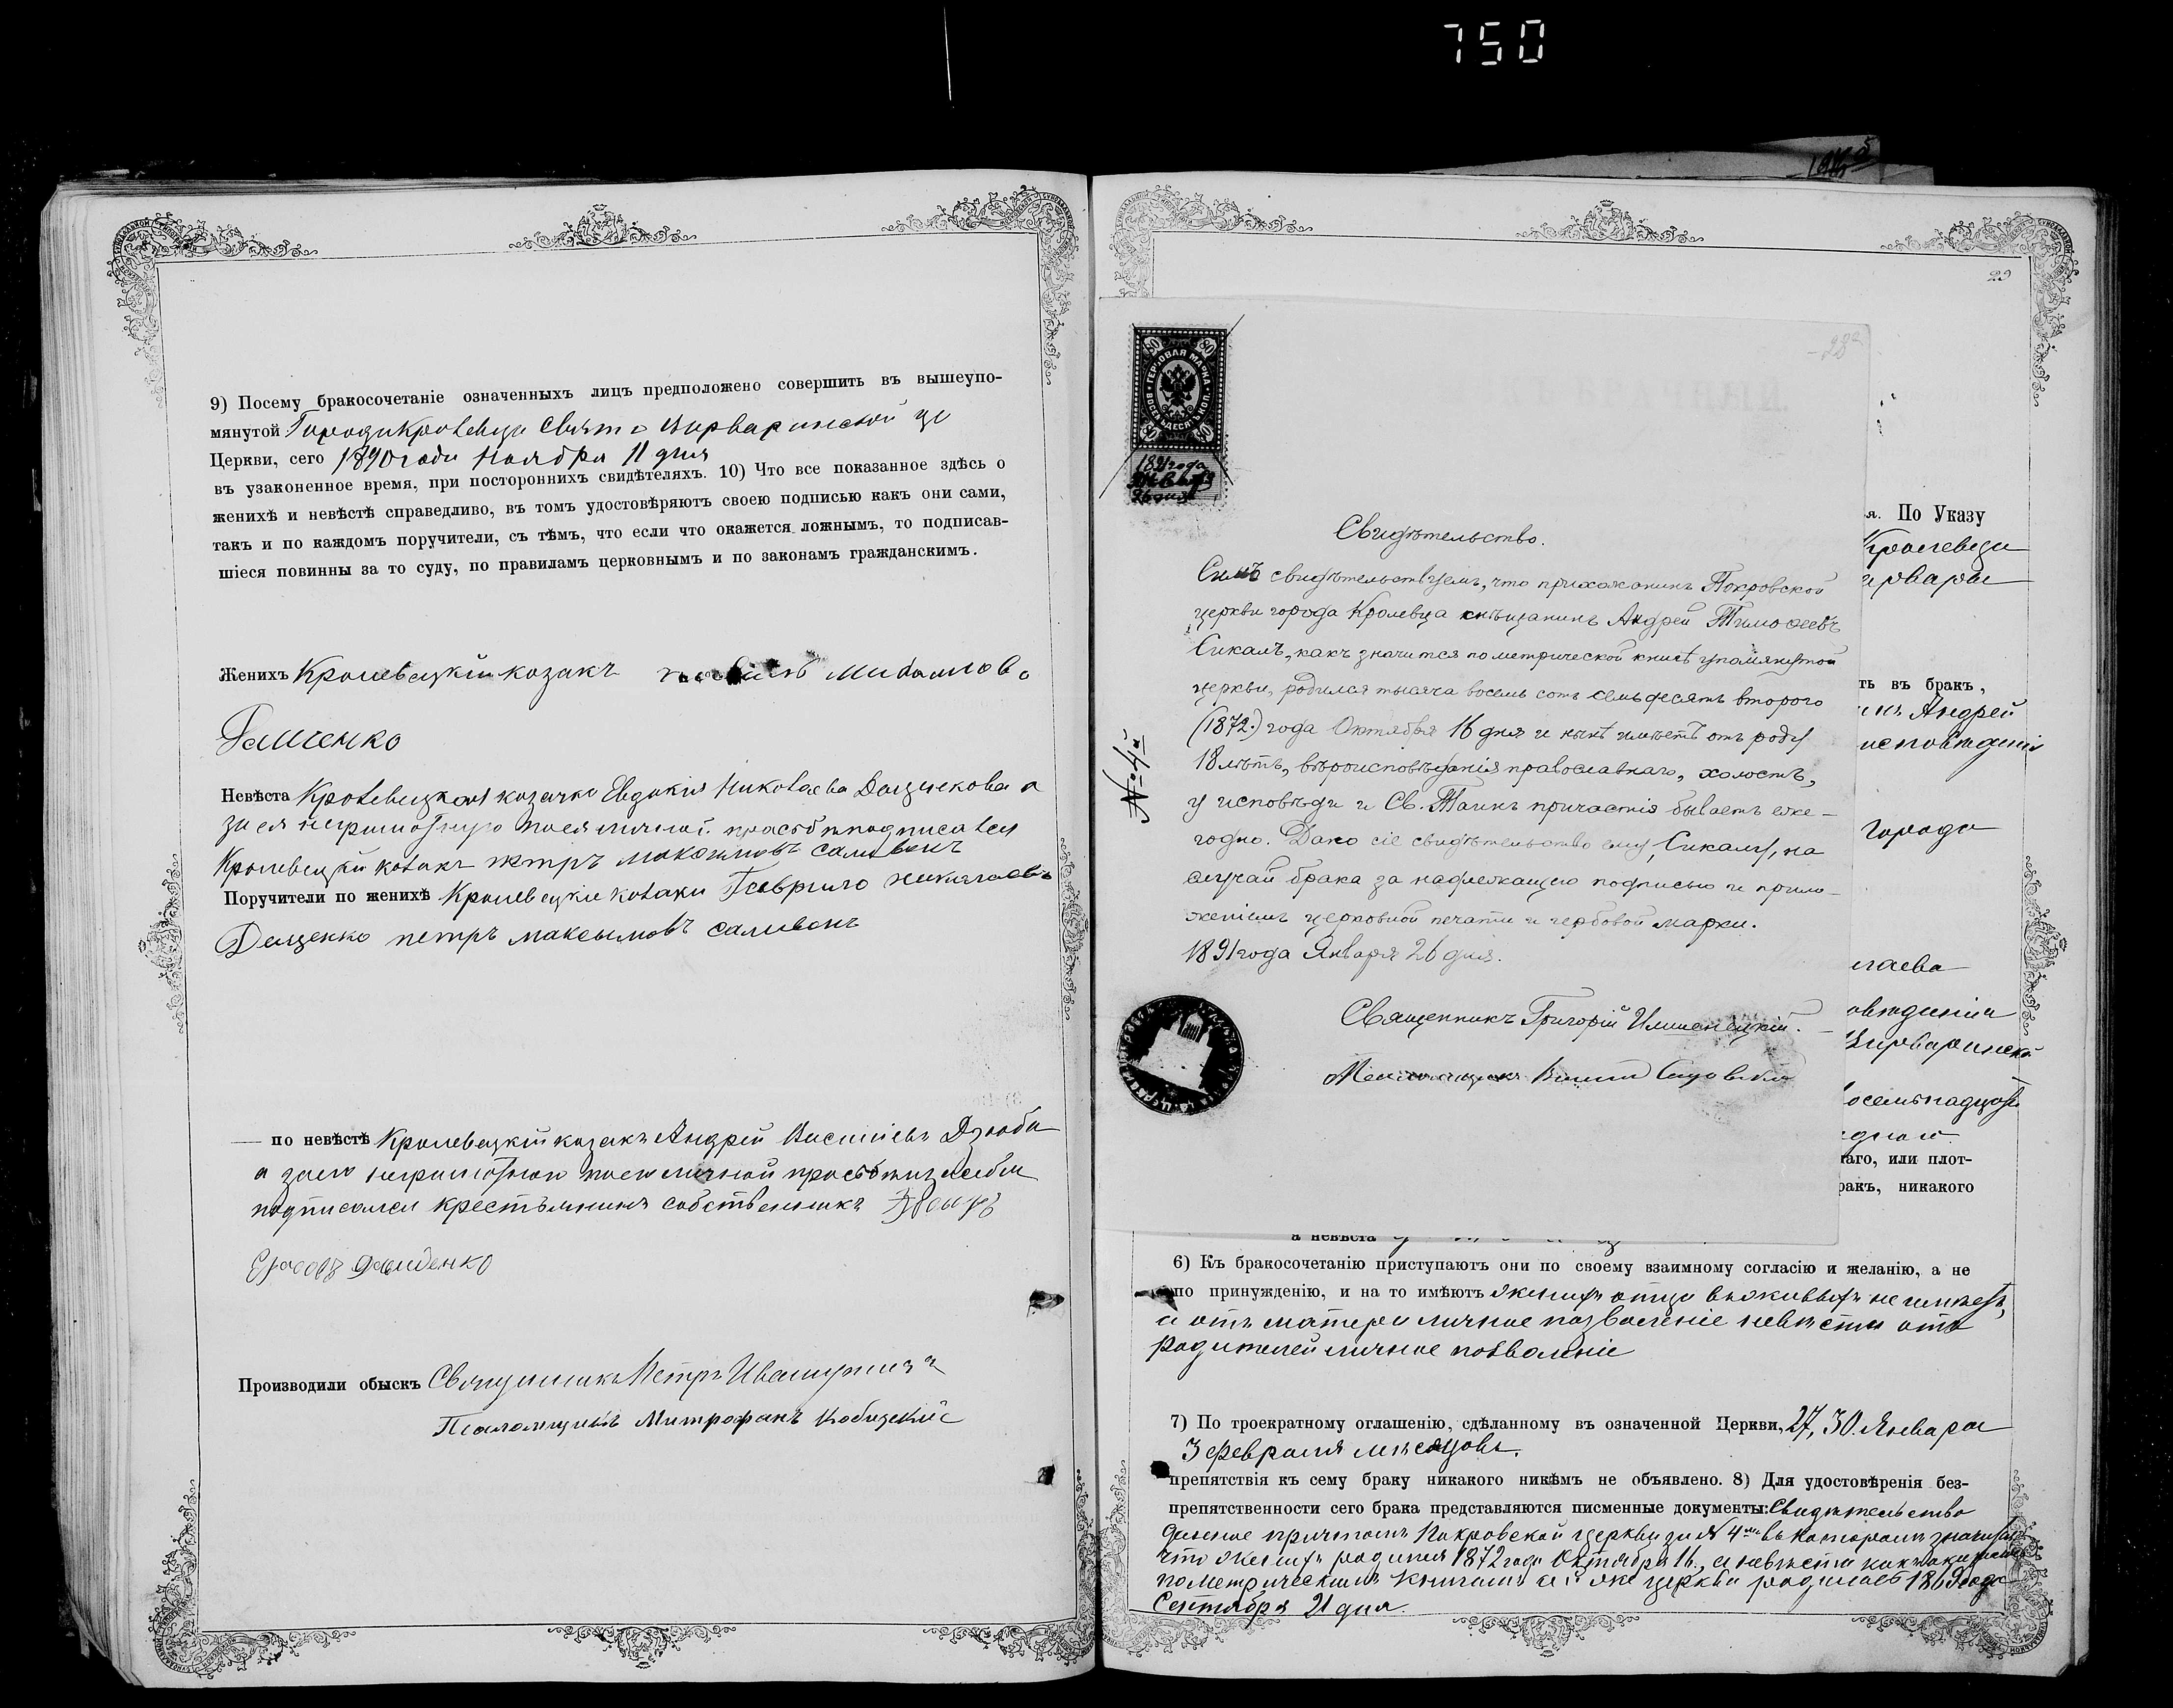 750
9) Посему бракосочетаніе означенныхъ лицъ предположено совершить въ вышеупо-
мянутой Города Кролевца Свято Варваринской це
Церкви, сего 1890 года Ноября 11 дня
въ узаконенное время, при постороннихъ свидѣтеляхъ. 10) Что все показанное здѣсь о
женихѣ и невѣстѣ справедливо, въ томъ удостовѣряютъ своею подписью какъ они сами,
такъ и по каждомъ поручители, съ тѣмъ, что если что окажется ложнымъ, то подписав-
шіеся повинны за то суду, по правиламъ церковнымъ и по законамъ гражданскимъ.
Женихъ Кролевецкій козакъ
Невѣста Кролевецкая козачка Евдокія Николаева Дощенкова а
за ея неграмотную по ея личной просьбѣ подписался
Кролевецкій козакъ петръ максимовъ саливонъ
Поручители по женихѣ Кролевецкіе козаки Гаврило николаевъ
Дощенко петръ максымовъ саливонъ
по невѣстѣ Кролевецкій козакъ Андрей Васильевъ Дзюба
а за его неграмотного по его личной просьбѣ и за себя
подписался крестьянинъ собственникъ
Давиденко
Производили обыскъ Священникъ Петръ
Псаломщикъ Митрофанъ
29
28а
ГЕРБОВАЯ МАРКА
ВОСЕМЬДЕСЯТЪ КОП.
80 80
80 80
1891 года
Января
26 дня
№ 4й
Свидѣтельство.
Симъ свидѣтельствуемъ, что прихожанинъ Покровской
церкви города Кролевца мѣщанинъ Андрей Тимофеевъ
Сикалъ, какъ значится по метрической книгѣ упомянутой
церкви, родился тысяча восемь сотъ семьдесятъ второго
(1872.) года Октября 16 дня и нынѣ имѣетъ отъ роду
18 лѣтъ, вѣроисповѣданія православнаго, холостъ,
у исповѣди и Св. Таинъ причастія бываетъ еже-
годно. Дано сіе свидѣтельство ему, Сикалу, на
случай брака за надлежащею подписью и прило-
женіемъ церковной печати и гербовой марки.
1891 года Января 26 дня.
Священникъ Григорій
я. По Указу
Кролевца
арвары
ть въ бракъ,
Андрей
исповѣданія
города
лаева
овѣданія
Варваринской
осемьнадцать
аго, или плот-
ракъ, никакого
а невѣста
6) Къ бракосочетанію приступаютъ они по своему взаимному согласію и желанію, а не
по принужденію, и на то имѣютъ женихъ отца въ живыхъ не имѣетъ,
а отъ матери личное позволеніе невѣста отъ
родителей личное позволеніе
7) По троекратному оглашенію, сдѣланному въ означенной Церкви, 27, 30 Января
3 Февраля мѣсяцовъ.
препятствія къ сему браку никакого никѣмъ не объявлено. 8) Для удостовѣренія без-
препятственности сего брака представляются писменные документы: Свидѣтельство
данное причтомъ Покровской церкви за № 4мъ въ которомъ значится
что женихъ родился 1872 года Октября 16, а невѣста какъ
по метрическимъ книгамъ сей же церкви родилась 1869 года
Сентября 21 дня.